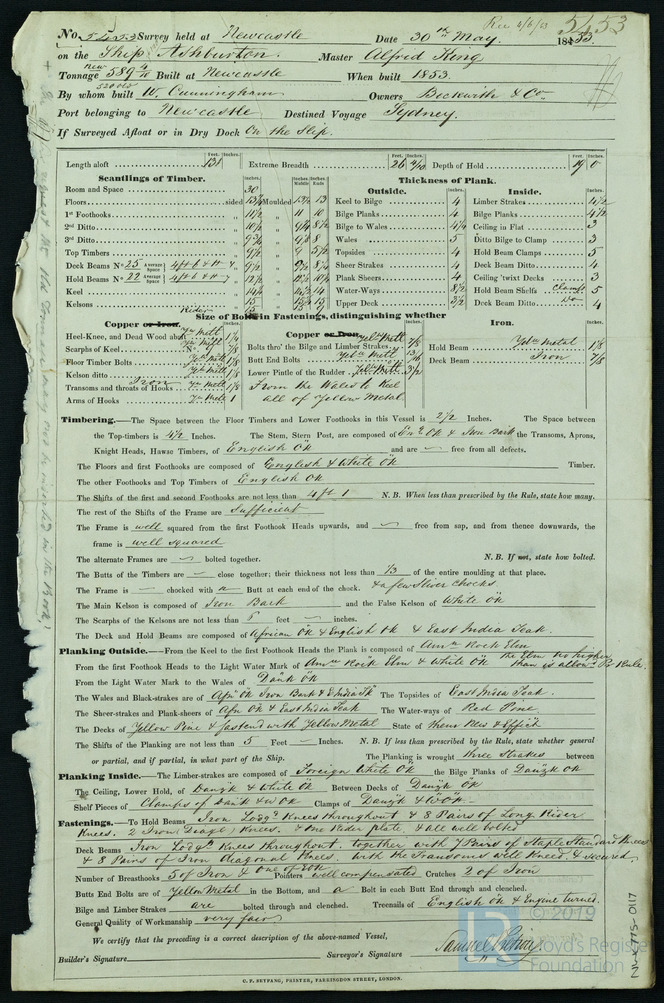 Rec 2/6/53
5453
No. 5453 Survey held at Newcastle Date 30th May. 1853.
on the Ship Ashburton. Master Alfred King
Tonnage New 589 4/10 Built at Newcastle When built 1853.
520 old
By whom built W. Cunningham Owners Beckwith & Co
Port belonging to Newcastle Destined Voyage Sydney.
If Surveyed Afloat or in Dry Dock On the Slip.
Length aloft 131 Extreme Breadth 26 4/10 Depth of Hold 19 0
Feet. Inches. Feet. Inches. Feet. Inches.
Scantlings of Timber.
Inches. Inches Middle Inches Ends
Room and Space 30
Floors sided 13 Moulded 13½ 13
1st Foothooks 11½ „ 11 10
2nd Ditto 10½ „ 9¼ 8½
3rd Ditto 9¾ „ 8
Top Timbers 9½ „ 5½
Deck Beams No 25 Average Space 9½ „ 9½
Hold Beams No 22 Average Space 12½ „
Keel 14½ „ 14
Kelsons 15 „ 15½ 13
Rider 15
Thickness of Plank.
Outside.
Inches.
Keel to Bilge 4
Bilge Planks 4
Bilge to Wales 4¼
Wales 5
Topsides 4
Sheer Strakes 4
Plank Sheers 4
Water-Ways 8½
Upper Deck 3½
Inside.
Inches.
Limber Strakes 4½
Bilge Planks 4½
Ceiling in Flat 3
Ditto Bilge to Clamp 3
Hold Beam Clamps 5
Deck Beam Ditto 4
Ceiling 'twixt Decks 3
Hold Beam Shelfs Clamps 5
Deck Beam Ditto Do 4
Size of Bolts in Fastenings, distinguishing whether
Copper or Iron.
Heel-Knee, and Dead Wood abaft Ym Mett 1¼
Scarphs of Keel No 7/8
Floor Timber Bolts Ym Mett 1⅛
Kelson ditto Ym Mett 1⅛
Transoms and throats of Hooks Iron Ym Mett 1⅛
Arms of Hooks Ym Mett 1
Copper or Iron.
Bolts thro' the Bilge and Limber Strakes Yel Mett 7/8
Butt End Bolts Yel Mett
Lower Pintle of the Rudder Yel Mett 3½
From the Wales to Keel
all of Yellow Metal
Iron.
Hold Beam Yel Metal 1⅛
Deck Beam Iron 7/8
Timbering.—The Space between the Floor Timbers and Lower Foothooks in this Vessel is 2½ Inches. The Space between
the Top-timbers is 4½ Inches. The Stem, Stern Post, are composed of En. Ok & Iron Bark the Transoms, Aprons,
Knight Heads, Hawse Timbers, of English Ok and are — free from all defects.
The Floors and first Foothooks are composed of English & White Ok Timber.
The other Foothooks and Top Timbers of English Ok
The Shifts of the first and second Foothooks are not less than 4 ft 1 N. B. When less than prescribed by the Rule, state how many.
The rest of the Shifts of the Frame are Sufficient
The Frame is well squared from the first Foothook Heads upwards, and — free from sap, and from thence downwards, the
frame is well squared
The alternate Frames are — bolted together. N. B. If not, state how bolted.
The Butts of the Timbers are — close together; their thickness not less than 1/3 of the entire moulding at that place.
The Frame is — chocked with a Butt at each end of the chock. & a few Sliver Chocks
The Main Kelson is composed of Iron Bark and the False Kelson of White Ok
The Scarphs of the Kelsons are not less than 5 feet — inches.
The Deck and Hold Beams are composed of African Ok & English Ok & East India Teak.
Planking Outside.—From the Keel to the first Foothook Heads the Plank is composed of Amn Rock Elm
From the first Foothook Heads to the Light Water Mark of Amn Rock Elm & White Ok the Elm no higher than is allowd Pr Rule.
From the Light Water Mark to the Wales of Dank Ok
The Wales and Black-strakes are of Afn Ok Iron Bark & E India Tk The Topsides of East India Teak.
The Sheer-strakes and Plank-sheers of Afn Ok & East India Teak The Water-ways of Red Pine
The Decks of Yellow Pine & fastend with Yellow Metal State of them New & Effict
The Shifts of the Planking are not less than 5 Feet — Inches. N. B. If less than prescribed by the Rule, state whether general
or partial, and if partial, in what part of the Ship. The Planking is wrought three strakes between
Planking Inside.—The Limber-strakes are composed of Foreign White Ok the Bilge Planks of Danzk Ok
The Ceiling, Lower Hold, of Danzk & White Ok Between Decks of Danzk Ok
Shelf Pieces of Clamps of Dank & W Ok Clamps of Danzk & W Ok
Fastenings.—To Hold Beams Iron Lodgg Knees throughout & 8 Pairs of Long Rider
Knees. 2 Iron (Diagl) Knees. & one Rider plate & all well bolted
Deck Beams Iron Lodgg Knees throughout, together with 7 Pairs of Staple Standard Knees
& 8 Pairs of Iron Diagonal Knees. With the Transoms well Kneed & secured.
Number of Breasthooks 5 of Iron & one of Ok Pointers well compensated Crutches 2 of Iron
Butts End Bolts are of Yellow Metal in the Bottom, and a Bolt in each Butt End through and clenched.
Bilge and Limber Strakes are bolted through and clenched. Treenails of English Ok & Engine turned.
General Quality of Workmanship very fair
We certify that the preceding is a correct description of the above-named Vessel,
Builder's Signature Surveyor's Signature
C. F. SEYFANG, PRINTER, FARRINGDON STREET, LONDON.
© 2019
Lloyd's Register
Foundation